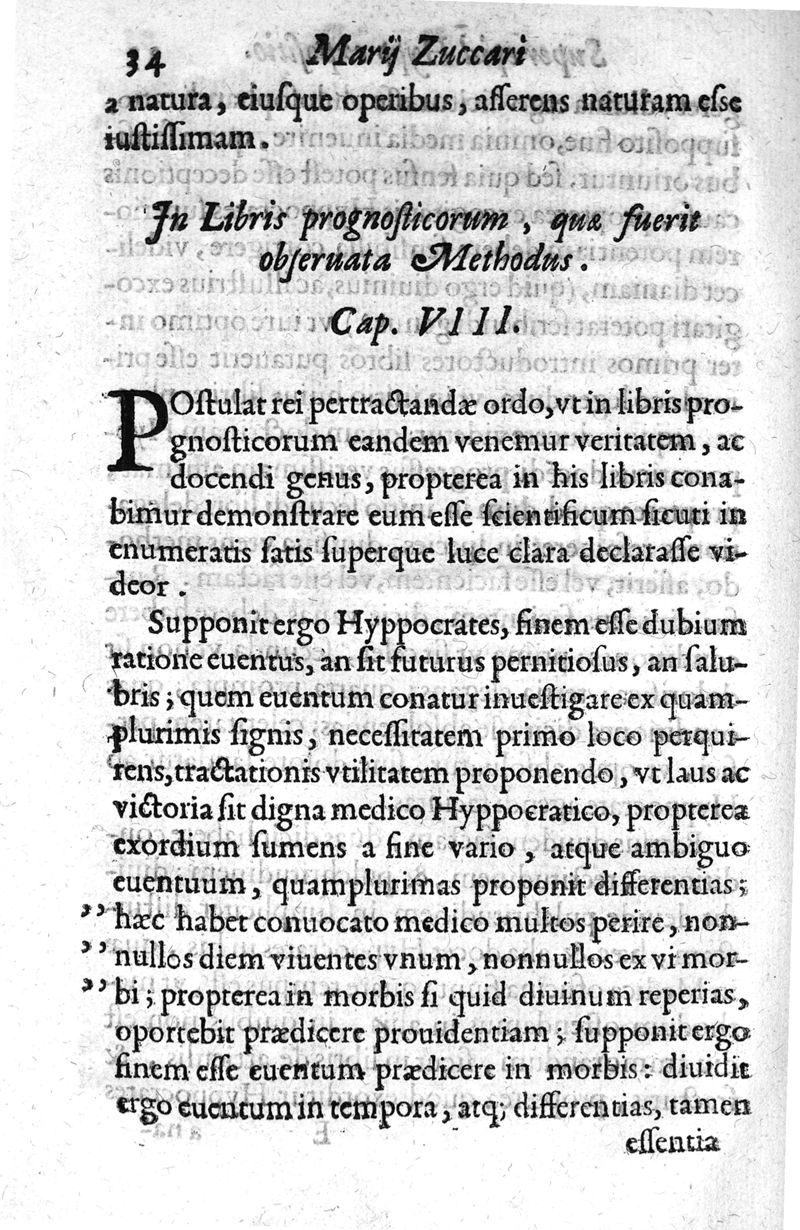 34 Marij Zuccari
a natura, eiuſque operibus, aſſerens naturam eſse
iuſtiſſimam.
In Libris prognoſticorum, quæ fuerit
obſeruata Methodus.
Cap. VIII.
POſtulat rei pertractandæ ordo, vt in libris pro-
gnoſticorum eandem venemur veritatem, ac
docendi genus, propterea in his libris cona-
bimur demonſtrare eum eſſe ſcientificum ſicuti in
enumeratis ſatis ſuperque luce clara declaraſſe vi-
deor.
Supponit ergo Hyppocrates, finem eſſe dubium
ratione euentus, an ſit futurus pernitioſus, an ſalu-
bris; quem euentum conatur inueſtigare ex quam-
plurimis ſignis, neceſſitatem primo loco perqui-
rens, tractationis vtilitatem proponendo, vt laus ac
victoria ſit digna medico Hyppocratico, propterea
exordium ſumens a fine vario, atque ambiguo
euentuum, quamplurimas proponit differentias;
,, hæc habet conuocato medico multos perire, non-
,, nullos diem viuentes vnum, nonnullos ex vi mor-
,, bi; propterea in morbis ſi quid diuinum reperias,
oportebit prædicere prouidentiam; ſupponit ergo
finem eſſe euentum prædicere in morbis: diuidit
ergo euentum in tempora, atq; differentias, tamen
eſſentia